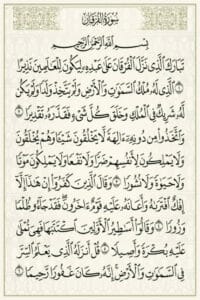 سُورَةُ الفُرْقَانِ
بِسْمِ ٱللَّهِ ٱلرَّحْمَٰنِ ٱلرَّحِيمِ
تَبَارَكَ ٱلَّذِى نَزَّلَ ٱلْفُرْقَانَ عَلَىٰ عَبْدِهِۦ لِيَكُونَ لِلْعَٰلَمِينَ نَذِيرًا
١ ٱلَّذِى لَهُۥ مُلْكُ ٱلسَّمَٰوَٰتِ وَٱلْأَرْضِ وَلَمْ يَتَّخِذْ وَلَدًا وَلَمْ يَكُن
لَّهُۥ شَرِيكٌ فِى ٱلْمُلْكِ وَخَلَقَ كُلَّ شَىْءٍ فَقَدَّرَهُۥ تَقْدِيرًا ٢
وَٱتَّخَذُوا۟ مِن دُونِهِۦٓ ءَالِهَةً لَّا يَخْلُقُونَ شَيْـًٔا وَهُمْ يُخْلَقُونَ
وَلَا يَمْلِكُونَ لِأَنفُسِهِمْ ضَرًّا وَلَا نَفْعًا وَلَا يَمْلِكُونَ مَوْتًا
وَلَا حَيَوٰةً وَلَا نُشُورًا ٣ وَقَالَ ٱلَّذِينَ كَفَرُوٓا۟ إِنْ هَٰذَآ إِلَّآ
إِفْكٌ ٱفْتَرَىٰهُ وَأَعَانَهُۥ عَلَيْهِ قَوْمٌ ءَاخَرُونَ فَقَدْ جَآءُو ظُلْمًا
وَزُورًا ٤ وَقَالُوٓا۟ أَسَٰطِيرُ ٱلْأَوَّلِينَ ٱكْتَتَبَهَا فَهِىَ تُمْلَىٰ
عَلَيْهِ بُكْرَةً وَأَصِيلًا ٥ قُلْ أَنزَلَهُ ٱلَّذِى يَعْلَمُ ٱلسِّرَّ
فِى ٱلسَّمَٰوَٰتِ وَٱلْأَرْضِ إِنَّهُۥ كَانَ غَفُورًا رَّحِيمًا ٦